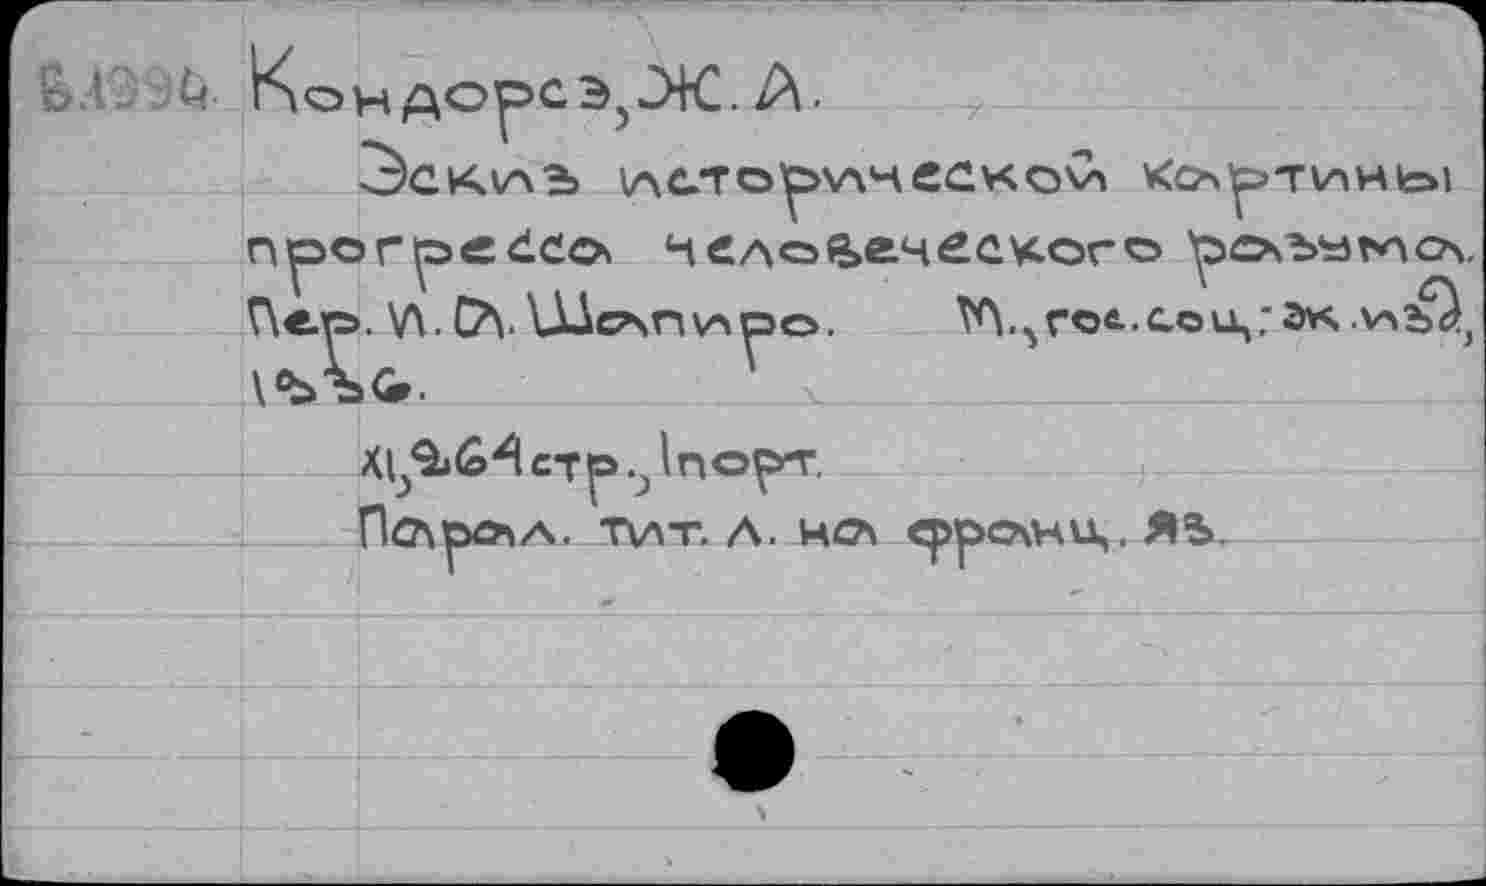 Кондорсэ, Ж. А.
Эскиз исторической картины
прогресса человеческого разума.
Пер. И. А. Шапиро. М., гос. соц.-эк. изд.,
1936.
XI, 264 стр., 1 порт.
Парал. тит. л. на франц. яз.